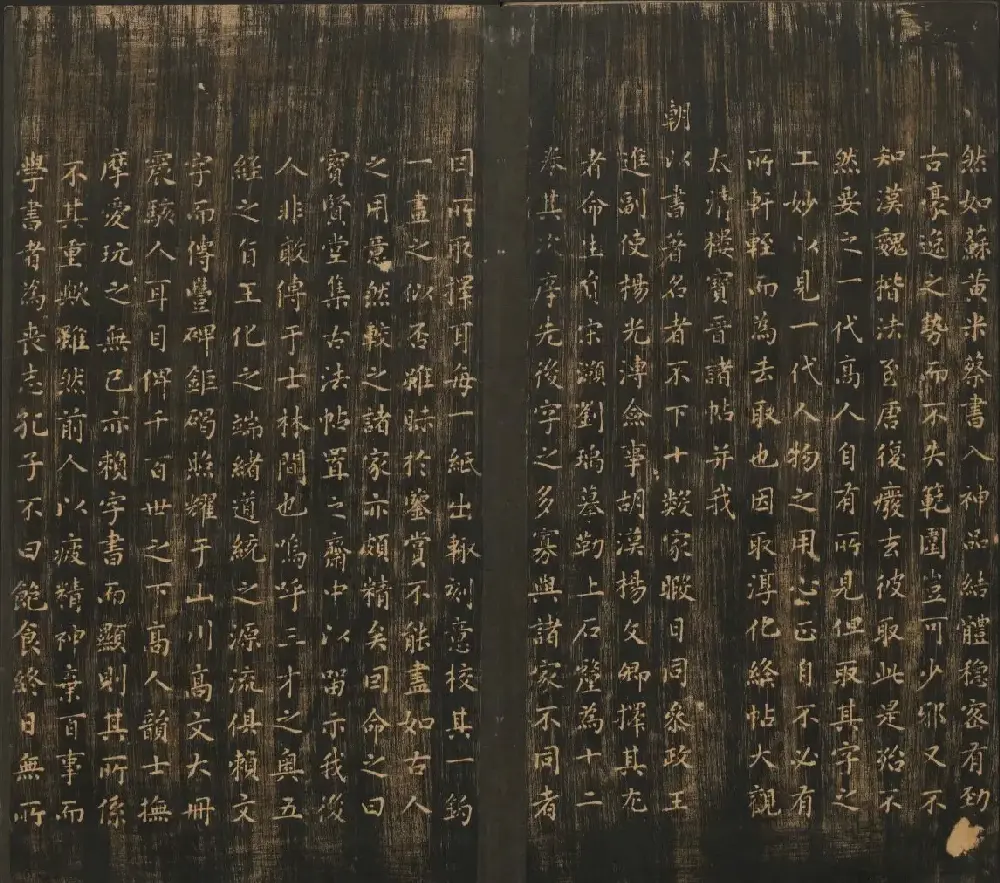 然如蘇黄米蔡書入神品結體穩密有勁
古豪逸之勢而不失範圍豈可少邪又不
知漢魏楷法至唐復癈去彼取此是殆不
然要之一代高人自有所見但取其字之
工妙以見一代人物之用心正自不必有
所軒輊而為去取也因取淳化絳帖大觀
太清樓寶晉諸帖并我
朝以書著名者不下十數家暇日同叅政王
進副使楊光溥僉事胡漢楊文卿擇其尤
者命生員宋灝劉瑀墓勒上石釐為十二
卷其次序先後字之多寡與諸家不同者
因所取擇耳每一紙出輙刻意校其一鈎
一畫之似否雖賒於鑒賞不能盡如古人
之用意然較之諸家亦頗精矣因命之曰
寳賢堂集古法帖置之齋中以留示我後
人非敢傳于士林間也嗚呼三才之奥五
經之旨王化之端緒道統之源流俱賴文
字而傳豐碑鉅碣照耀于山川髙文大冊
震駭人耳目俾千百世之下高人韻士撫
摩愛玩之無已亦賴字書而顯則其所係
不其重歟雖然前人以疲精神棄百事而
學書者為喪志孔子不曰飽食終日無所